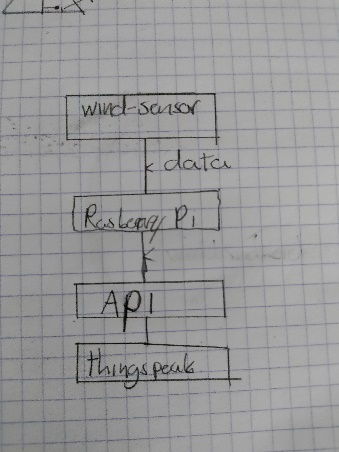 wind-sensor
data
Rasberry Pi
API
thingspeak